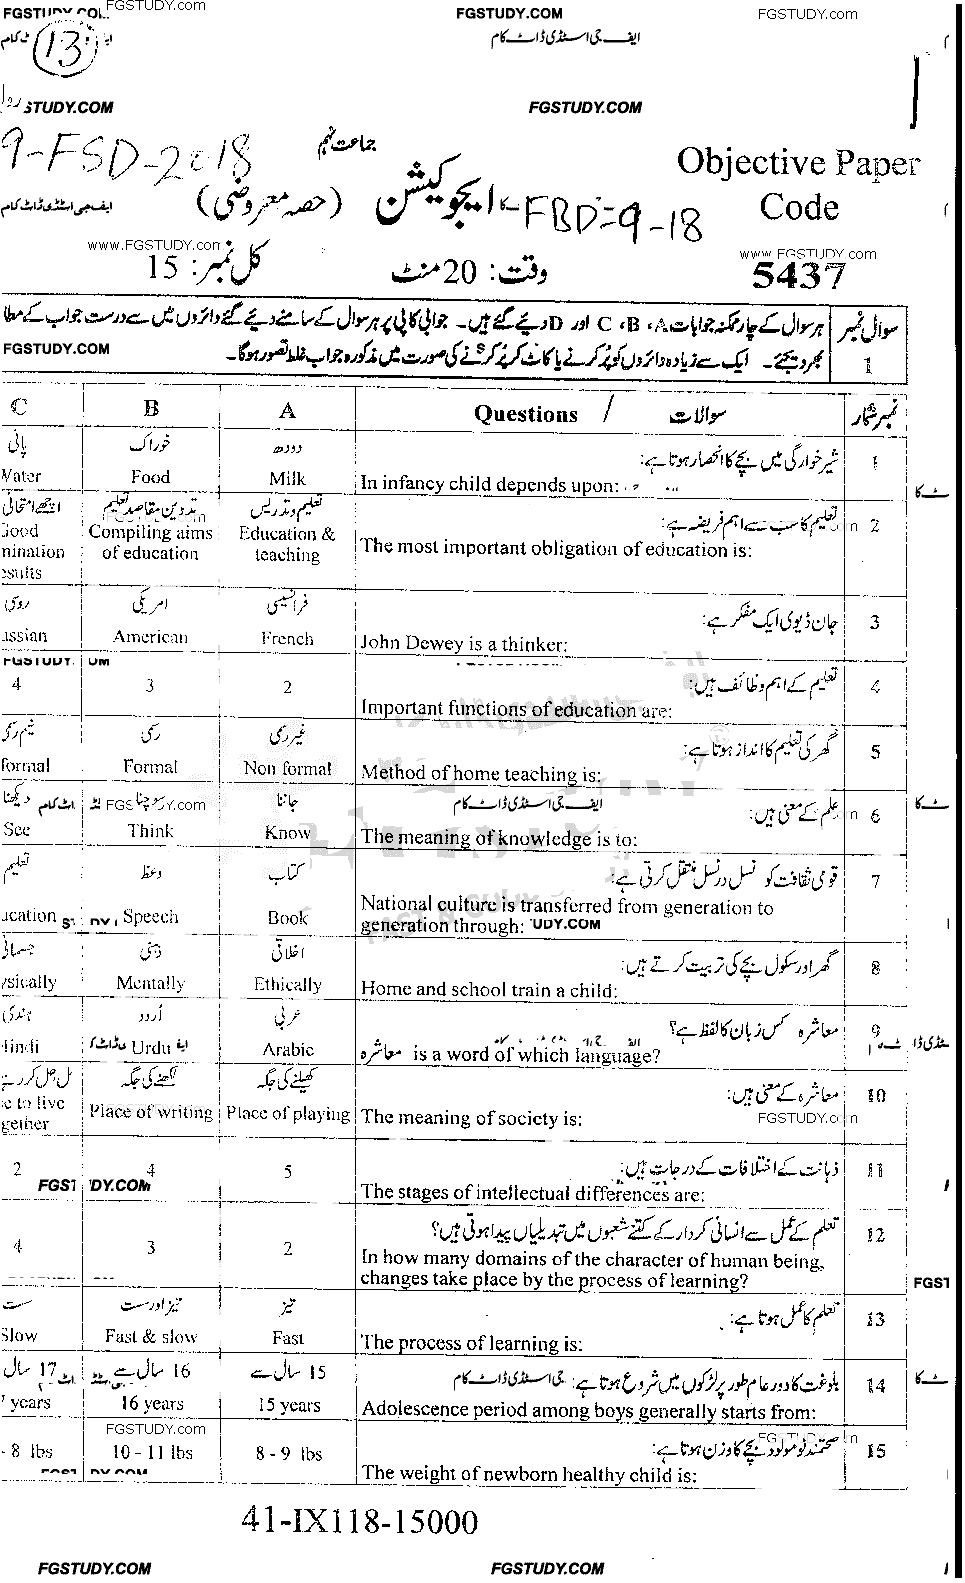 FGSTUDY.COM FGSTUDY.COM FGSTUDY.com
13 ایف جی اسٹڈی ڈاٹ کام
STUDY.COM FGSTUDY.COM
9-FSD-2018 جماعت نہم Objective Paper
ایف جی اسٹڈی ڈاٹ کام (حصہ معروضی) ایجوکیشن FBD-9-18 Code
www.FGSTUDY.com www.FGSTUDY.com
کل نمبر: 15 وقت: 20 منٹ 5437
سوال نمبر ہر سوال کے چار ممکنہ جوابات A، B، C اور D دیئے گئے ہیں۔ جوابی کاپی پر ہر سوال کے سامنے دیئے گئے دائروں میں سے درست جواب کے
1 بھر دیجئے۔ ایک سے زیادہ دائروں کو پُر کرنے یا کاٹ کر پُر کرنے کی صورت میں مذکورہ جواب غلط تصور ہوگا۔
FGSTUDY.COM
C B A Questions / سوالات نمبر شمار
پانی خوراک دودھ شیر خوارگی میں بچے کا انحصار ہوتا ہے: 1
Water Food Milk In infancy child depends upon:
اچھے امتحانی تدوین مقاصد تعلیم تعلیم و تدریس تعلیم کا سب سے اہم فریضہ ہے: 2
Good Compiling aims Education &
of education teaching The most important obligation of education is:
روسی امریکی فرانسیسی جان ڈیوی ایک مفکر ہے: 3
American French John Dewey is a thinker:
FGSTUDY
4 3 2 تعلیم کے اہم وظائف ہیں: 4
Important functions of education are:
نیم رسمی رسمی غیر رسمی گھر کی تعلیم کا انداز ہوتا ہے: 5
formal Formal Non formal Method of home teaching is:
دیکھنا سوچنا جاننا ایف جی اسٹڈی ڈاٹ کام علم کے معنی ہیں: 6
See Think Know The meaning of knowledge is to:
تعلیم وعظ کتاب قومی ثقافت کو نسل در نسل منتقل کرتی ہے: 7
Speech Book National culture is transferred from generation to
generation through: UDY.COM
جسمانی ذہنی اخلاقی گھر اور سکول بچے کی تربیت کرتے ہیں: 8
Mentally Ethically Home and school train a child:
ہندی اُردو عربی معاشرہ کس زبان کا لفظ ہے؟ 9
Hindi Urdu Arabic معاشرہ is a word of which language?
لکھنے کی جگہ کھیلنے کی جگہ معاشرہ کے معنی ہیں: 10
to live Place of writing Place of playing The meaning of society is: FGSTUDY.com
2 4 5 ذہانت کے اختلافات کے درجات ہیں: 11
FGST DY.COM The stages of intellectual differences are:
تعلم کے عمل سے انسانی کردار کے کتنے شعبوں میں تبدیلیاں پیدا ہوتی ہیں؟ 12
4 3 2 In how many domains of the character of human being,
changes take place by the process of learning? FGST
سست تیز اور سست تیز تعلم کا عمل ہوتا ہے: 13
Slow Fast & slow Fast The process of learning is:
17 سال 16 سال سے 15 سال سے بلوغت کا دور عام طور پر لڑکوں میں شروع ہوتا ہے: جی اسٹڈی ڈاٹ کام 14
years 16 years 15 years Adolescence period among boys generally starts from:
FGSTUDY.com
- 8 lbs 10 - 11 lbs 8 - 9 lbs صحتمند نومولود بچے کا وزن ہوتا ہے: 15
The weight of newborn healthy child is:
41-IX118-15000
FGSTUDY.COM FGSTUDY.COM